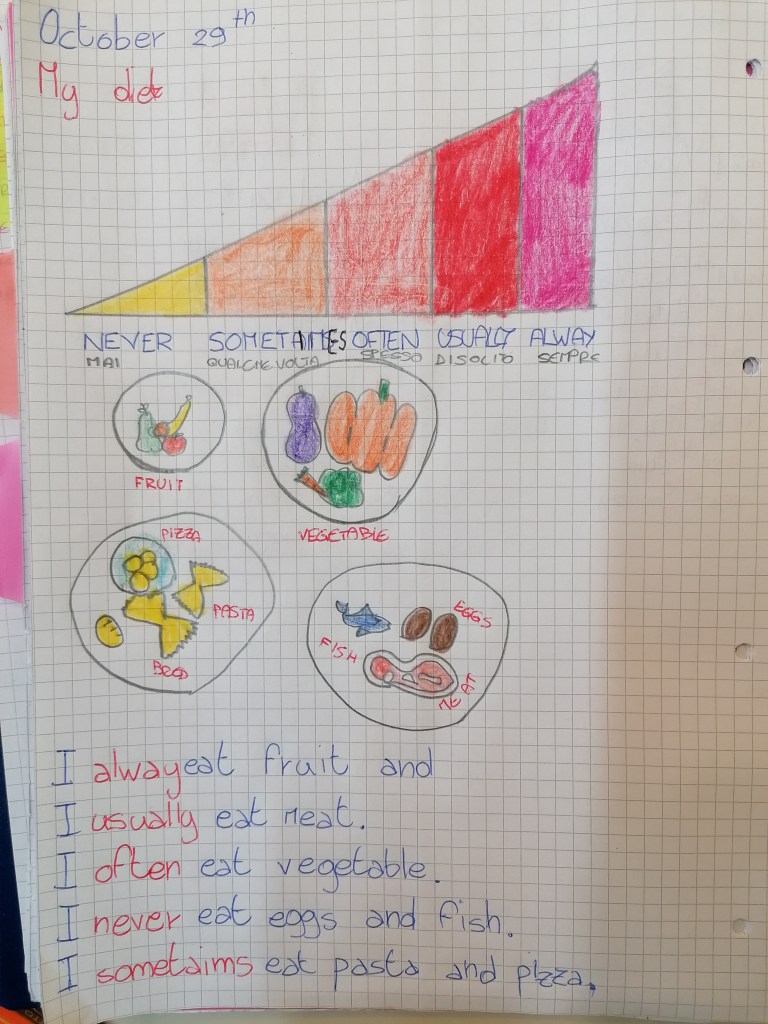 October 29th
My diet
NEVER SOMETAIMES OFTEN USUALLY ALWAY
MAI QUALCHE VOLTA SPESSO DI SOLITO SEMPRE
FRUIT
VEGETABLE
PIZZA
PASTA
BRED
EGGS
FISH
MEAT
I alway eat fruit and
I usually eat meat.
I often eat vegetable.
I never eat eggs and fish.
I sometaims eat pasta and pizza.